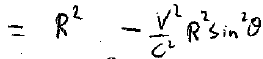 = R² - v²/c² R² sin²θ